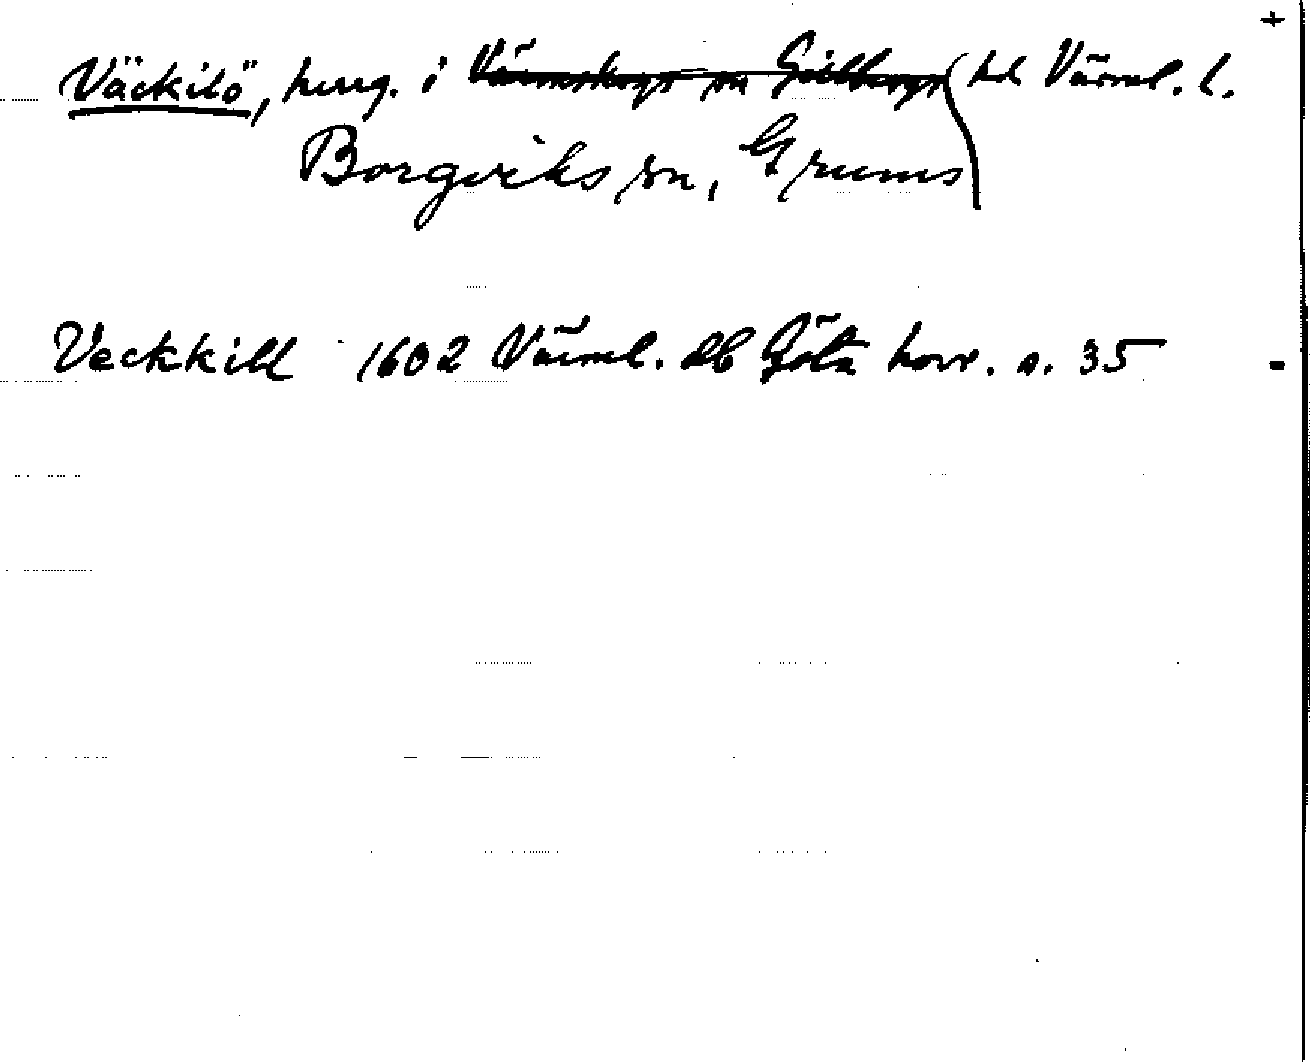 +
Väckilö, herrg. i ~~Värmskogs sn Gillbergs~~ hd Värml. l.
Borgviks sn, Grums
Veckkill 1602 Värml. db Göta hovr. s. 35 -